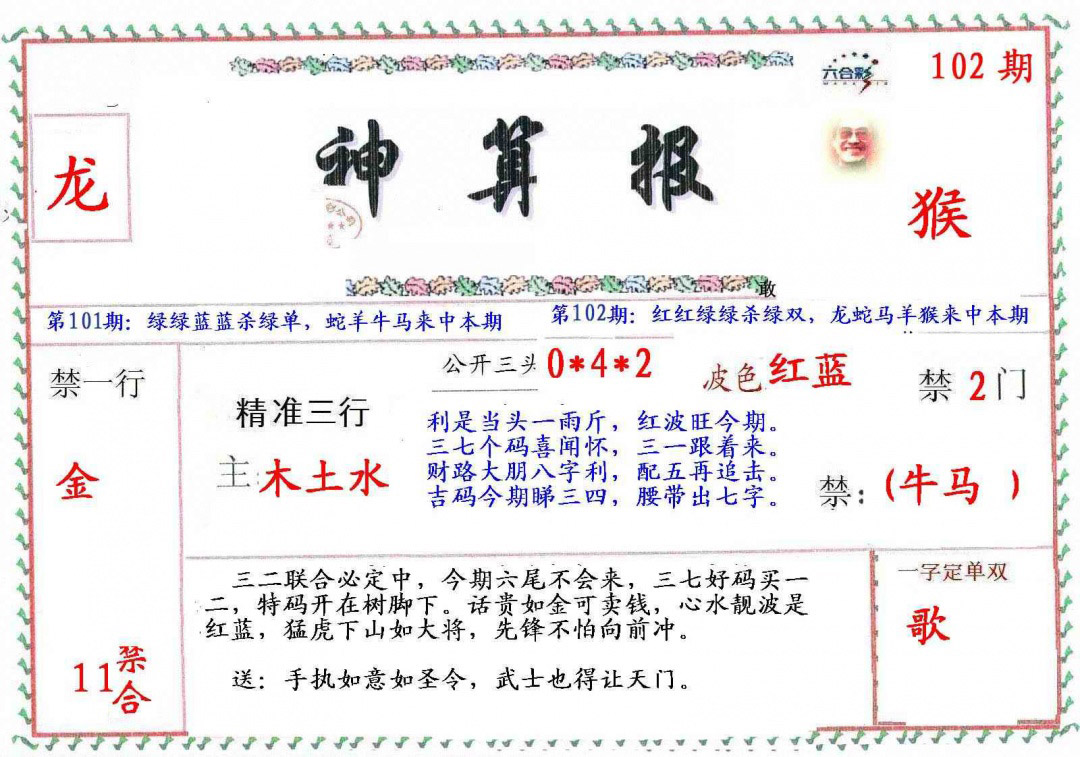 六合彩
102 期
神算报
龙
猴
敢
第101期：绿绿蓝蓝杀绿单，蛇羊牛马来中本期
第102期：红红绿绿杀绿双，龙蛇马羊猴来中本期
禁一行
金
11
禁合
精准三行
主:木土水
公开三头 0*4*2
波色 红蓝
利是当头一雨斤，红波旺今期。
三七个码喜闻怀，三一跟着来。
财路大朋八字利，配五再追击。
吉码今期睇三四，腰带出七字。
禁 2 门
禁：(牛马 )
三二联合必定中，今期六尾不会来，三七好码买一
二，特码开在树脚下。话贵如金可卖钱，心水靓波是
红蓝，猛虎下山如大将，先锋不怕向前冲。
送：手执如意如圣令，武士也得让天门。
一字定单双
歌